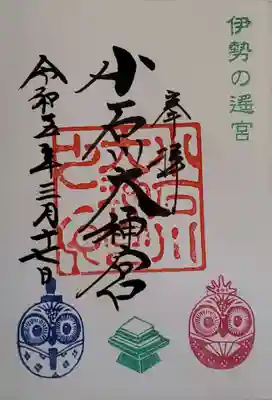 伊勢の遥宮
奉拝
小石川大神宮
令和五年三月十七日